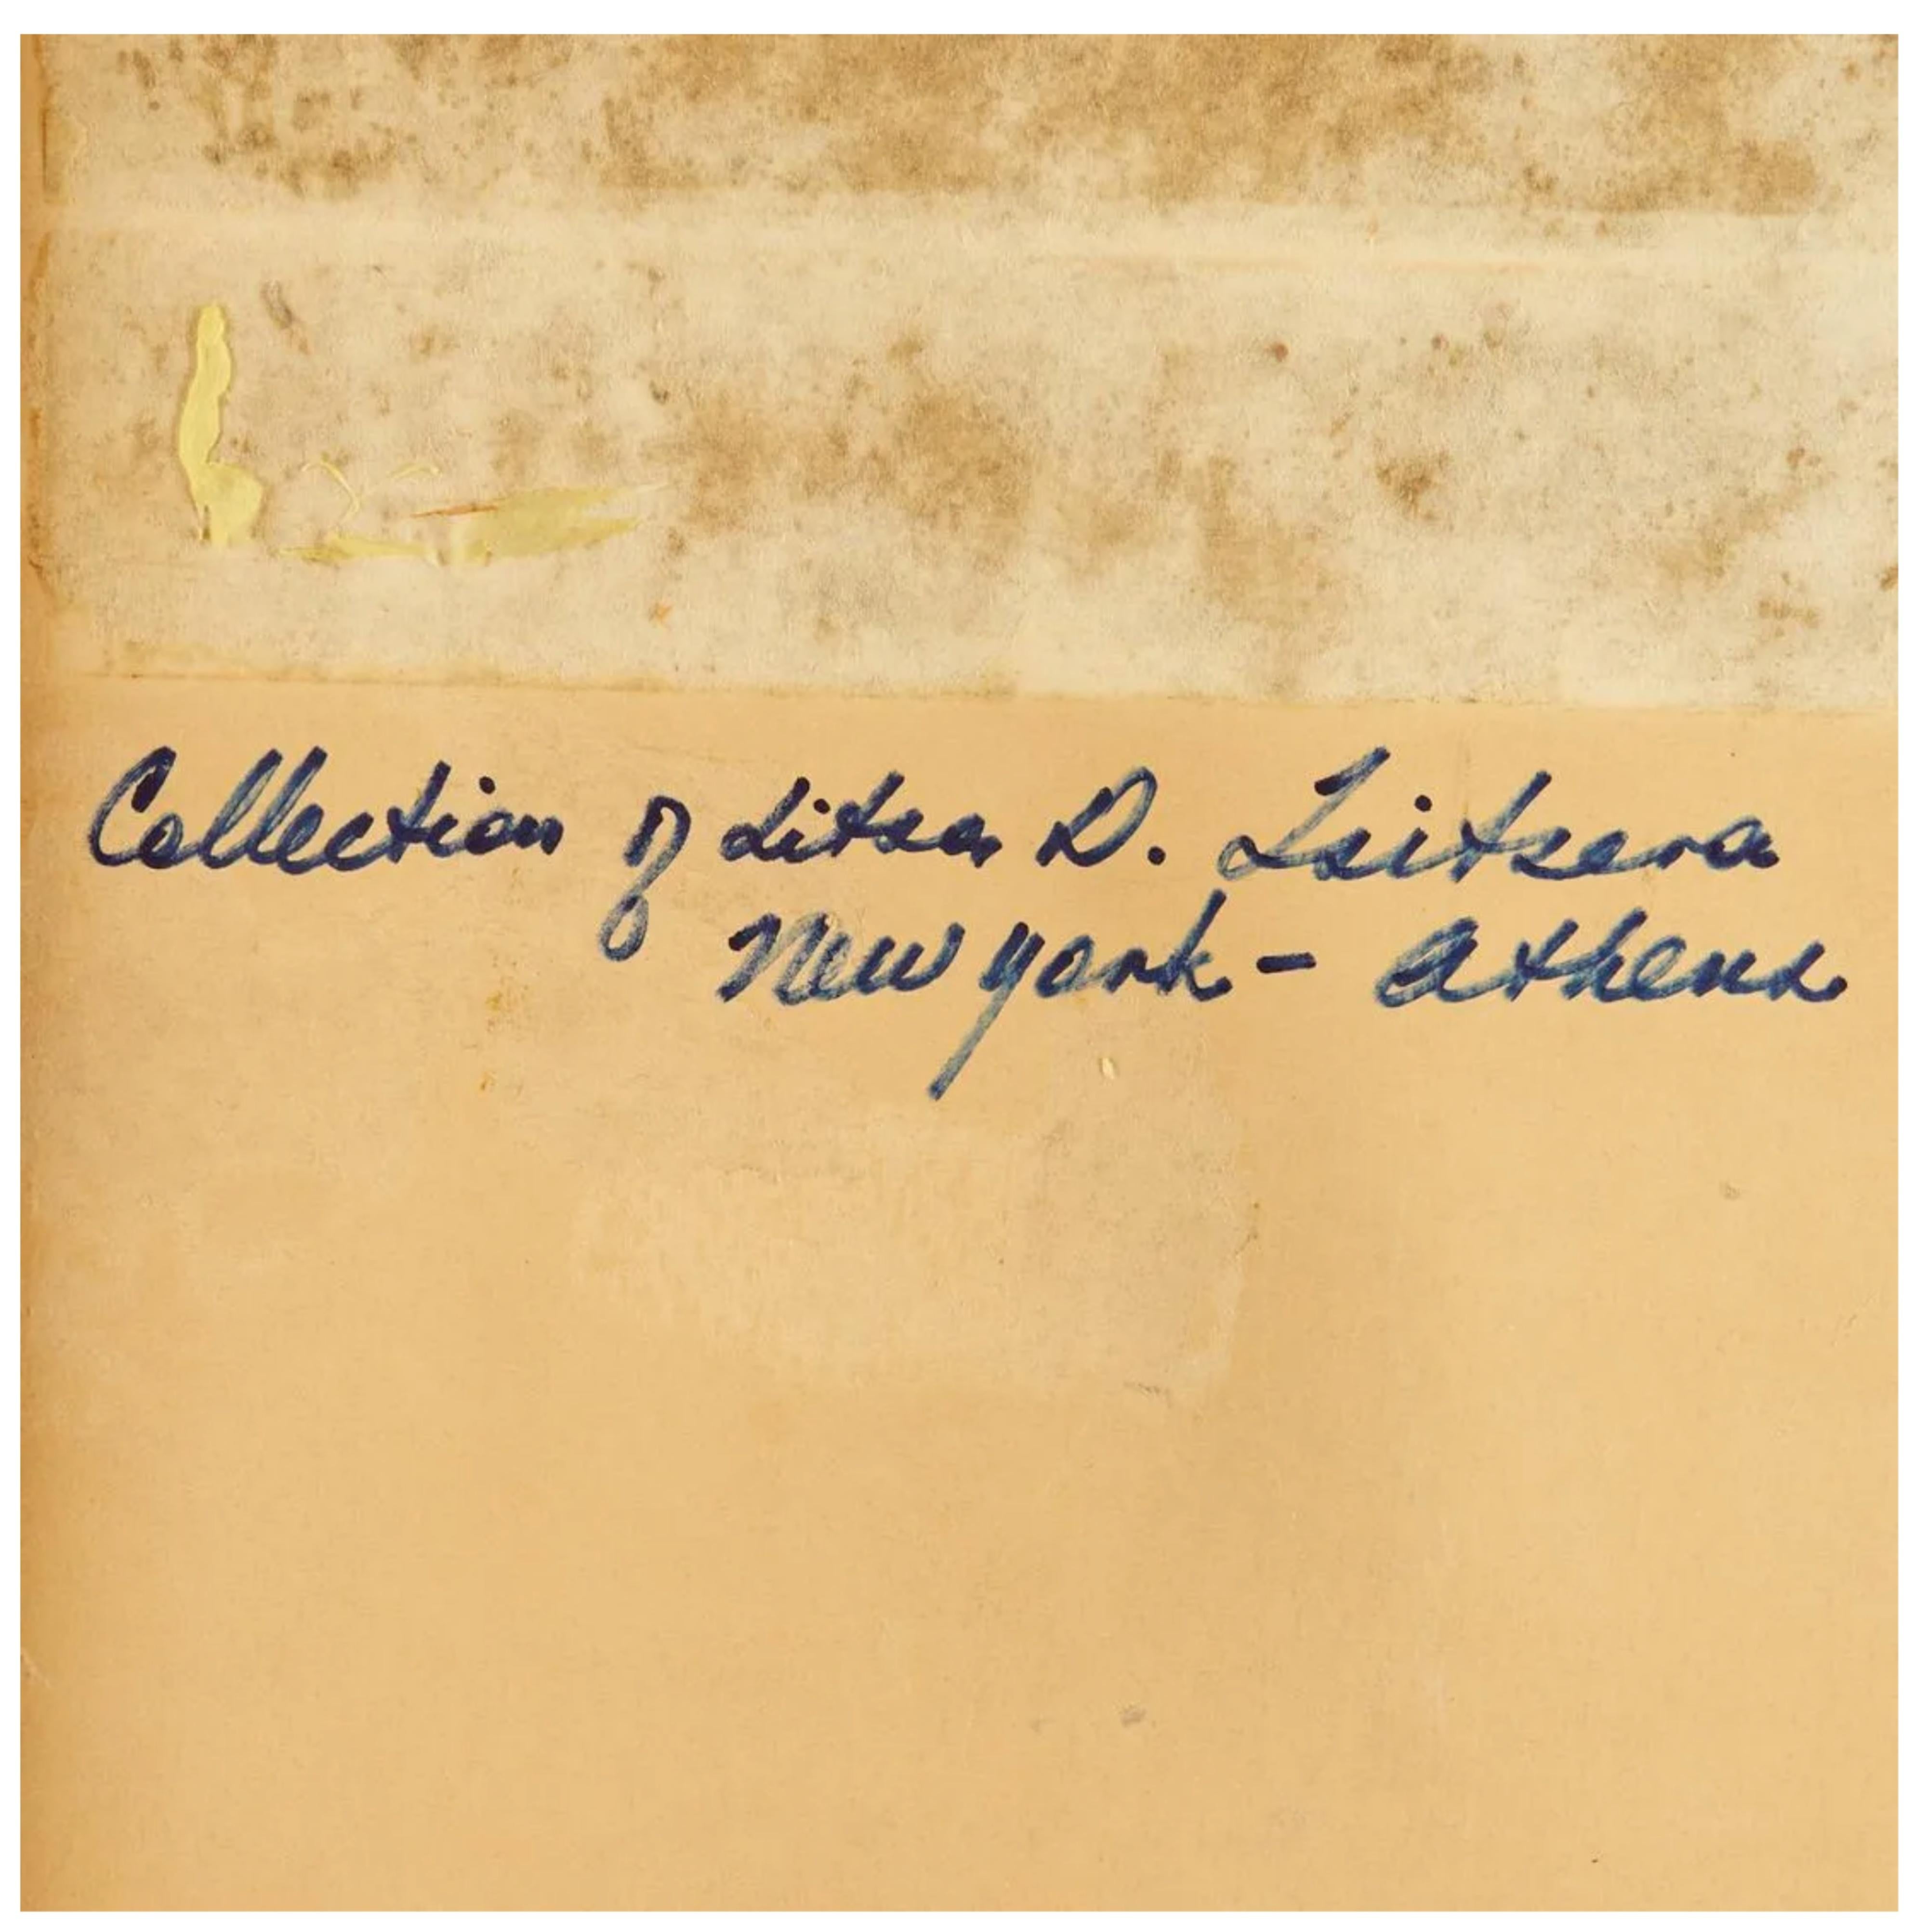 Collection of Litsa D. Tsitsera
New York - Athens